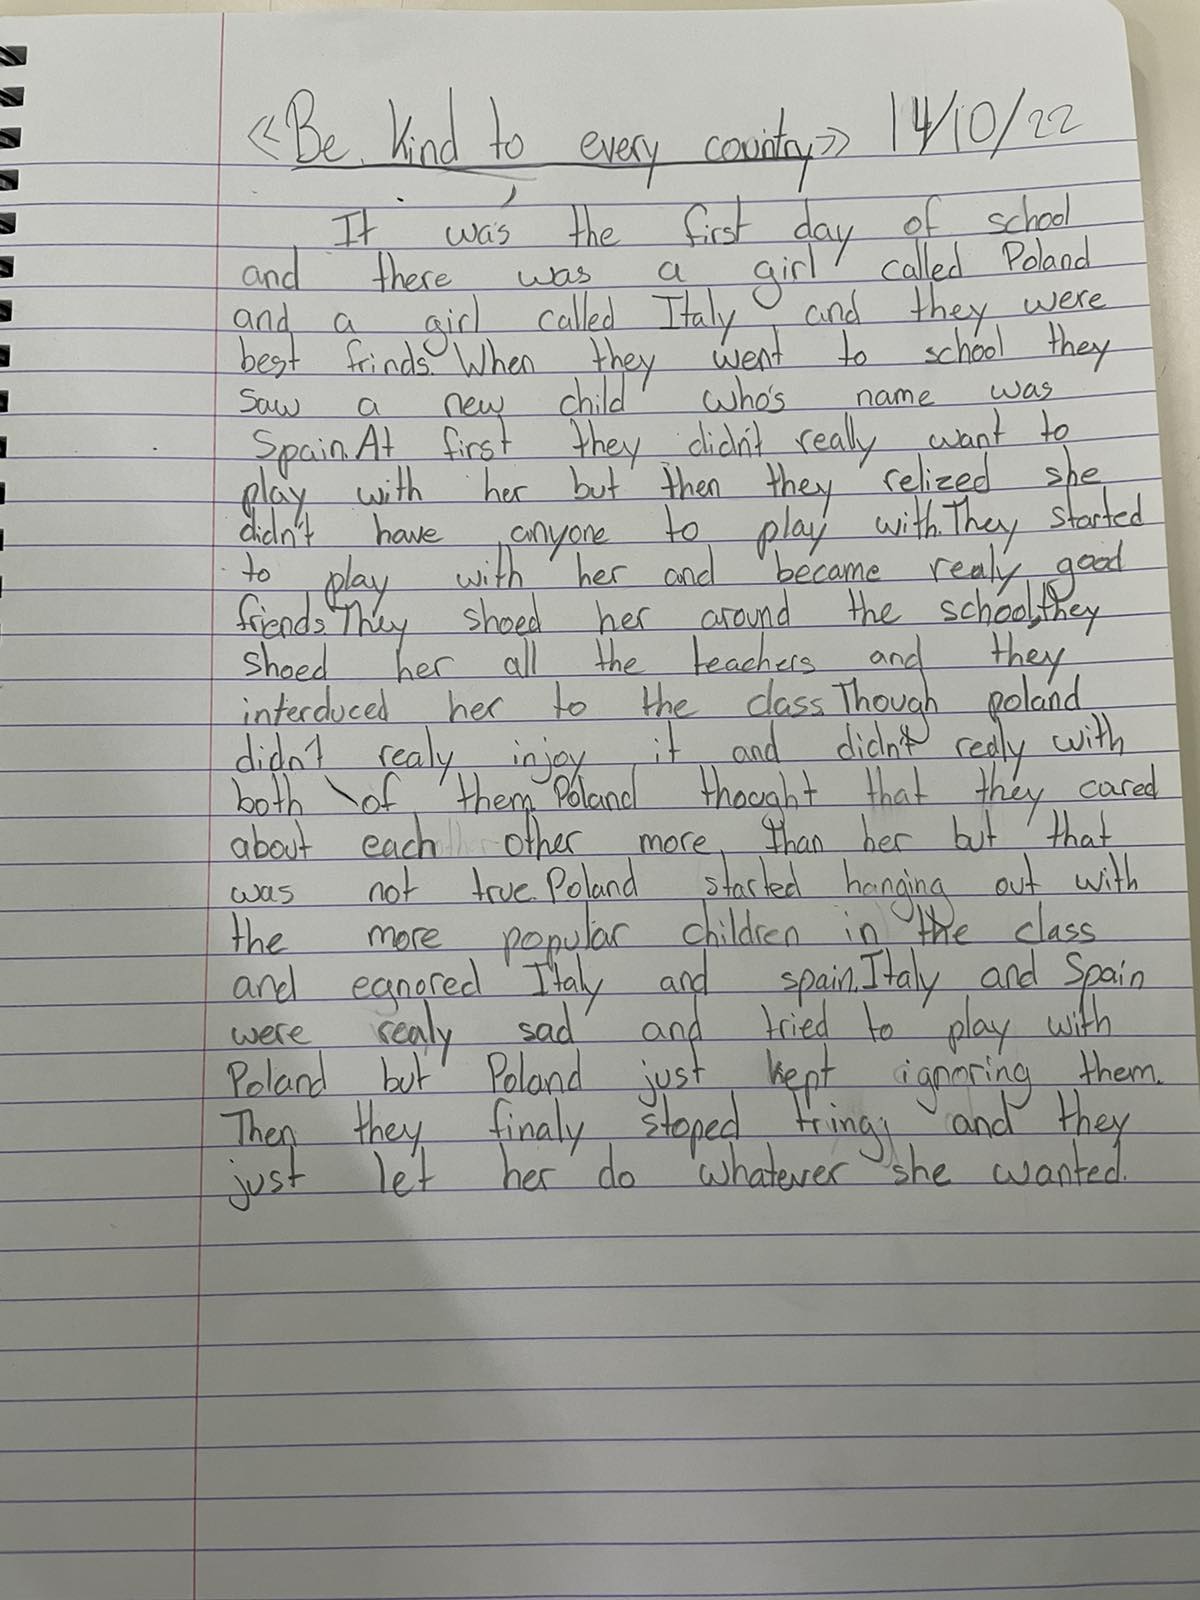 «Be kind to every country» 14/10/22
It was the first day of school
and there was a girl called Poland
and a girl called Italy and they were
best frinds. When they went to school they
saw a new child who's name was
Spain. At first they didn't really want to
play with her but then they relized she
didn't have anyone to play with. They started
to play with her and became realy good
friends. They shoed her around the school, they
shoed her all the teachers and they
interduced her to the class. Though poland
didn't realy injoy it and didn't realy with
both of them. Poland thought that they cared
about each other more than her but that
was not true. Poland started hanging out with
the more popular children in the class
and egnored Italy and spain. Italy and Spain
were realy sad and tried to play with
Poland but Poland just kept ignoring them.
Then they finaly stoped tring and they
just let her do whatever she wanted.